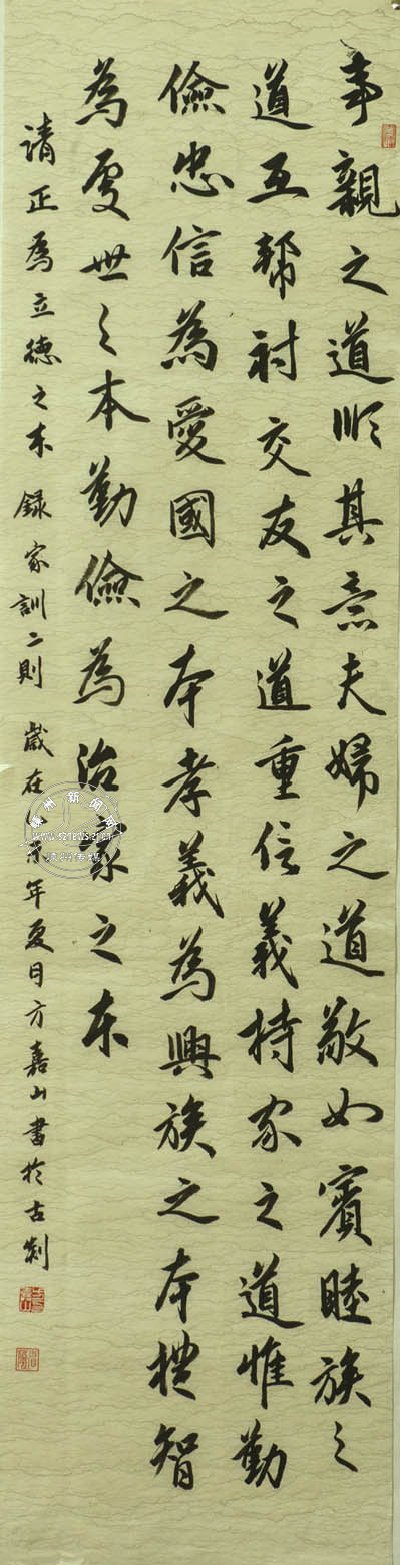 事親之道順其意夫婦之道敬如賓睦族之
道互幫討交友之道重信義持家之道惟勤
儉忠信為愛國之本孝義為興族之本禮智
為處世之本勤儉為治家之本
清正為立德之本 錄家訓二則 歲在乙未年夏日方嘉山書於古剡
嵊州新闻网
www.sznews.zj.cn